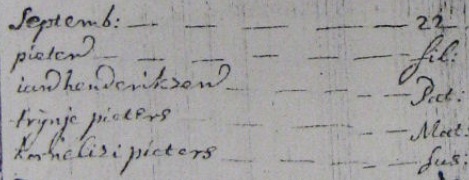 Septemb: — — — — — 22
pieter — — — — — fil:
iandhenderikzen — — — Pat:
trijnje pieters — — — Mat:
kornelis i pieters — — — sus: